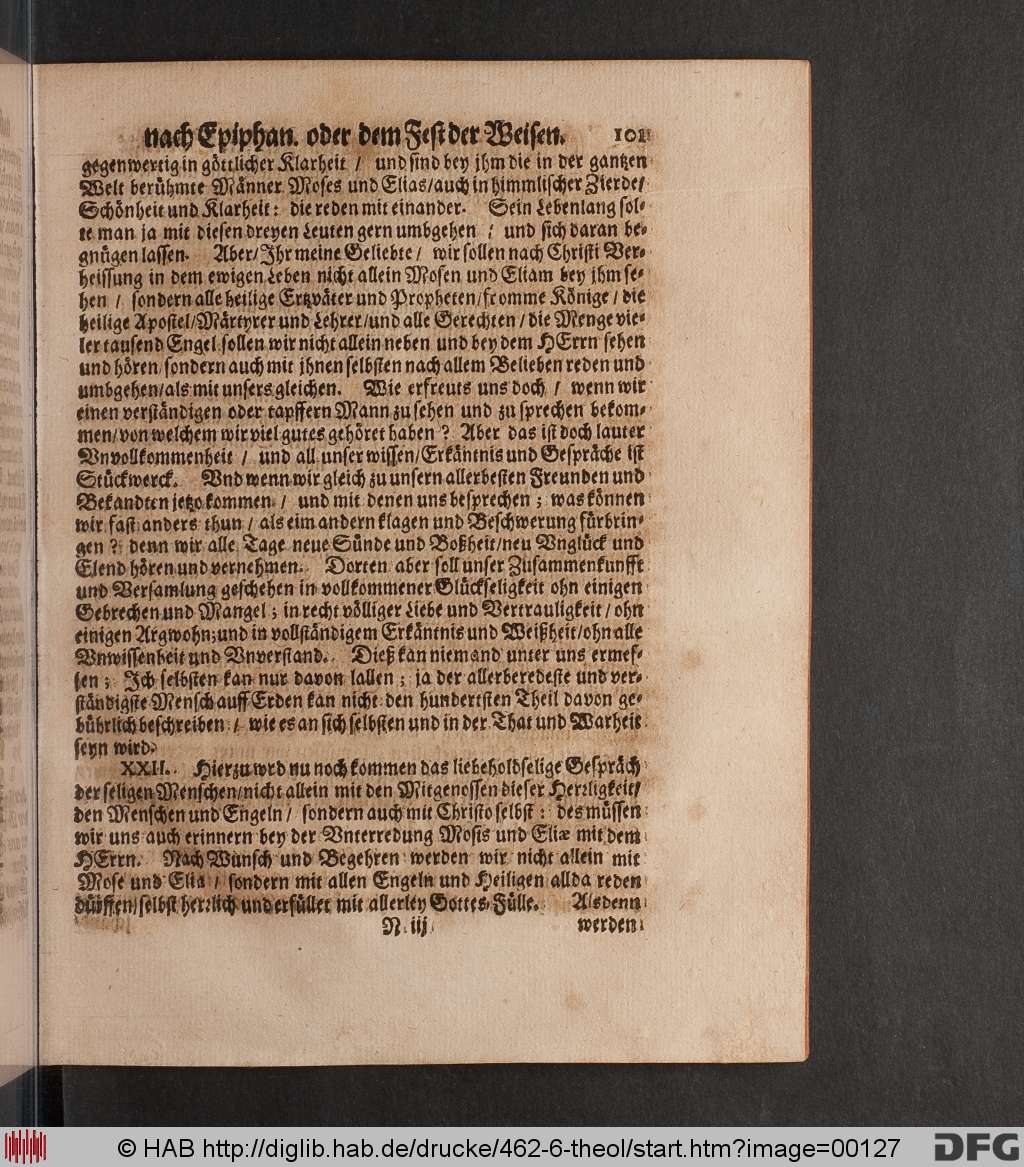 nach Epiphan. oder dem Fest der Weisen. 101
gegenwertig in göttlicher Klarheit / und sind bey jhm die in der gantzen
Welt berühmte Männer Moses und Elias/auch in himmlischer Zierde/
Schönheit und Klarheit: die reden mit einander. Sein Lebenlang sol-
te man ja mit diesen dreyen Leuten gern umbgehen / und sich daran be-
gnügen lassen. Aber/Ihr meine Geliebte / wir sollen nach Christi Ver-
heissung in dem ewigen Leben nicht allein Mosen und Eliam bey jhm se-
hen / sondern alle heilige Ertzväter und Propheten/fromme Könige / die
heilige Apostel/Märtyrer und Lehrer/und alle Gerechten / die Menge vie-
ler tausend Engel sollen wir nicht allein neben und bey dem HErrn sehen
und hören/sondern auch mit jhnen selbsten nach allem Belieben reden und
umbgehen/als mit unsers gleichen. Wie erfreuts uns doch / wenn wir
einen verständigen oder tapffern Mann zu sehen und zu sprechen bekom-
men/von welchem wir viel gutes gehöret haben? Aber das ist doch lauter
Vnvollkommenheit / und all unser wissen/Erkäntnis und Gespräche ist
Stückwerck. Vnd wenn wir gleich zu unsern allerbesten Freunden und
Bekandten jetzo kommen / und mit denen uns besprechen; was können
wir fast anders thun / als eim andern klagen und Beschwerung fürbrin-
gen? denn wir alle Tage neue Sünde und Boßheit/neu Vnglück und
Elend hören und vernehmen. Dorten aber soll unser Zusammenkunfft
und Versamlung geschehen in vollkommener Glückseligkeit ohn einigen
Gebrechen und Mangel; in recht völliger Liebe und Vertrauligkeit / ohn
einigen Argwohn;und in vollständigem Erkäntnis und Weißheit/ohn alle
Vnwissenheit und Vnverstand. Dieß kan niemand unter uns ermes-
sen; Ich selbsten kan nur davon lallen; ja der allerberedeste und ver-
ständigste Mensch auff Erden kan nicht den hundertsten Theil davon ge-
bührlich beschreiben / wie es an sich selbsten und in der That und Warheit
seyn wird.
XXII. Hierzu wrd nu noch kommen das liebeholdselige Gespräch
der seligen Menschen/nicht allein mit den Mitgenossen dieser Herrligkeit/
den Menschen und Engeln / sondern auch mit Christo selbst: des müssen
wir uns auch erinnern bey der Vnterredung Mosis und Eliæ mit dem
HErrn. Nach Wunsch und Begehren werden wir nicht allein mit
Mose und Elia / sondern mit allen Engeln und Heiligen allda reden
dürffen/selbst herrlich und erfüllet mit allerley Gottes-Fülle. Alsdenn
N iij werden
© HAB http://diglib.hab.de/drucke/462-6-theol/start.htm?image=00127
DFG